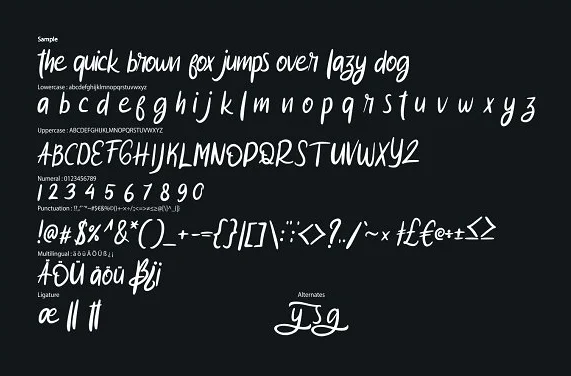 Sample
the quick brown fox jumps over lazy dog
Lowercase : abcdefghijklmnopqrstuvwxyz
a b c d e f g h i j k l m n o p q r s t u v w x y z
Uppercase : ABCDEFGHIJKLMNOPQRSTUVWXYZ
ABCDEFGHIJKLMNOPQRSTUVWXYZ
Numeral : 0123456789
1 2 3 4 5 6 7 8 9 0
Punctuation :
!@#$%^&*()_+-={}|[]\:;"'<>?,./`~× ‡£€©÷±≤≥
Multilingual : ä ö ü Ä Ö Ü ß ¿ ¡
ÄÖÜ äöü ß¿¡
Ligature
æ ll tt
Alternates
y s g